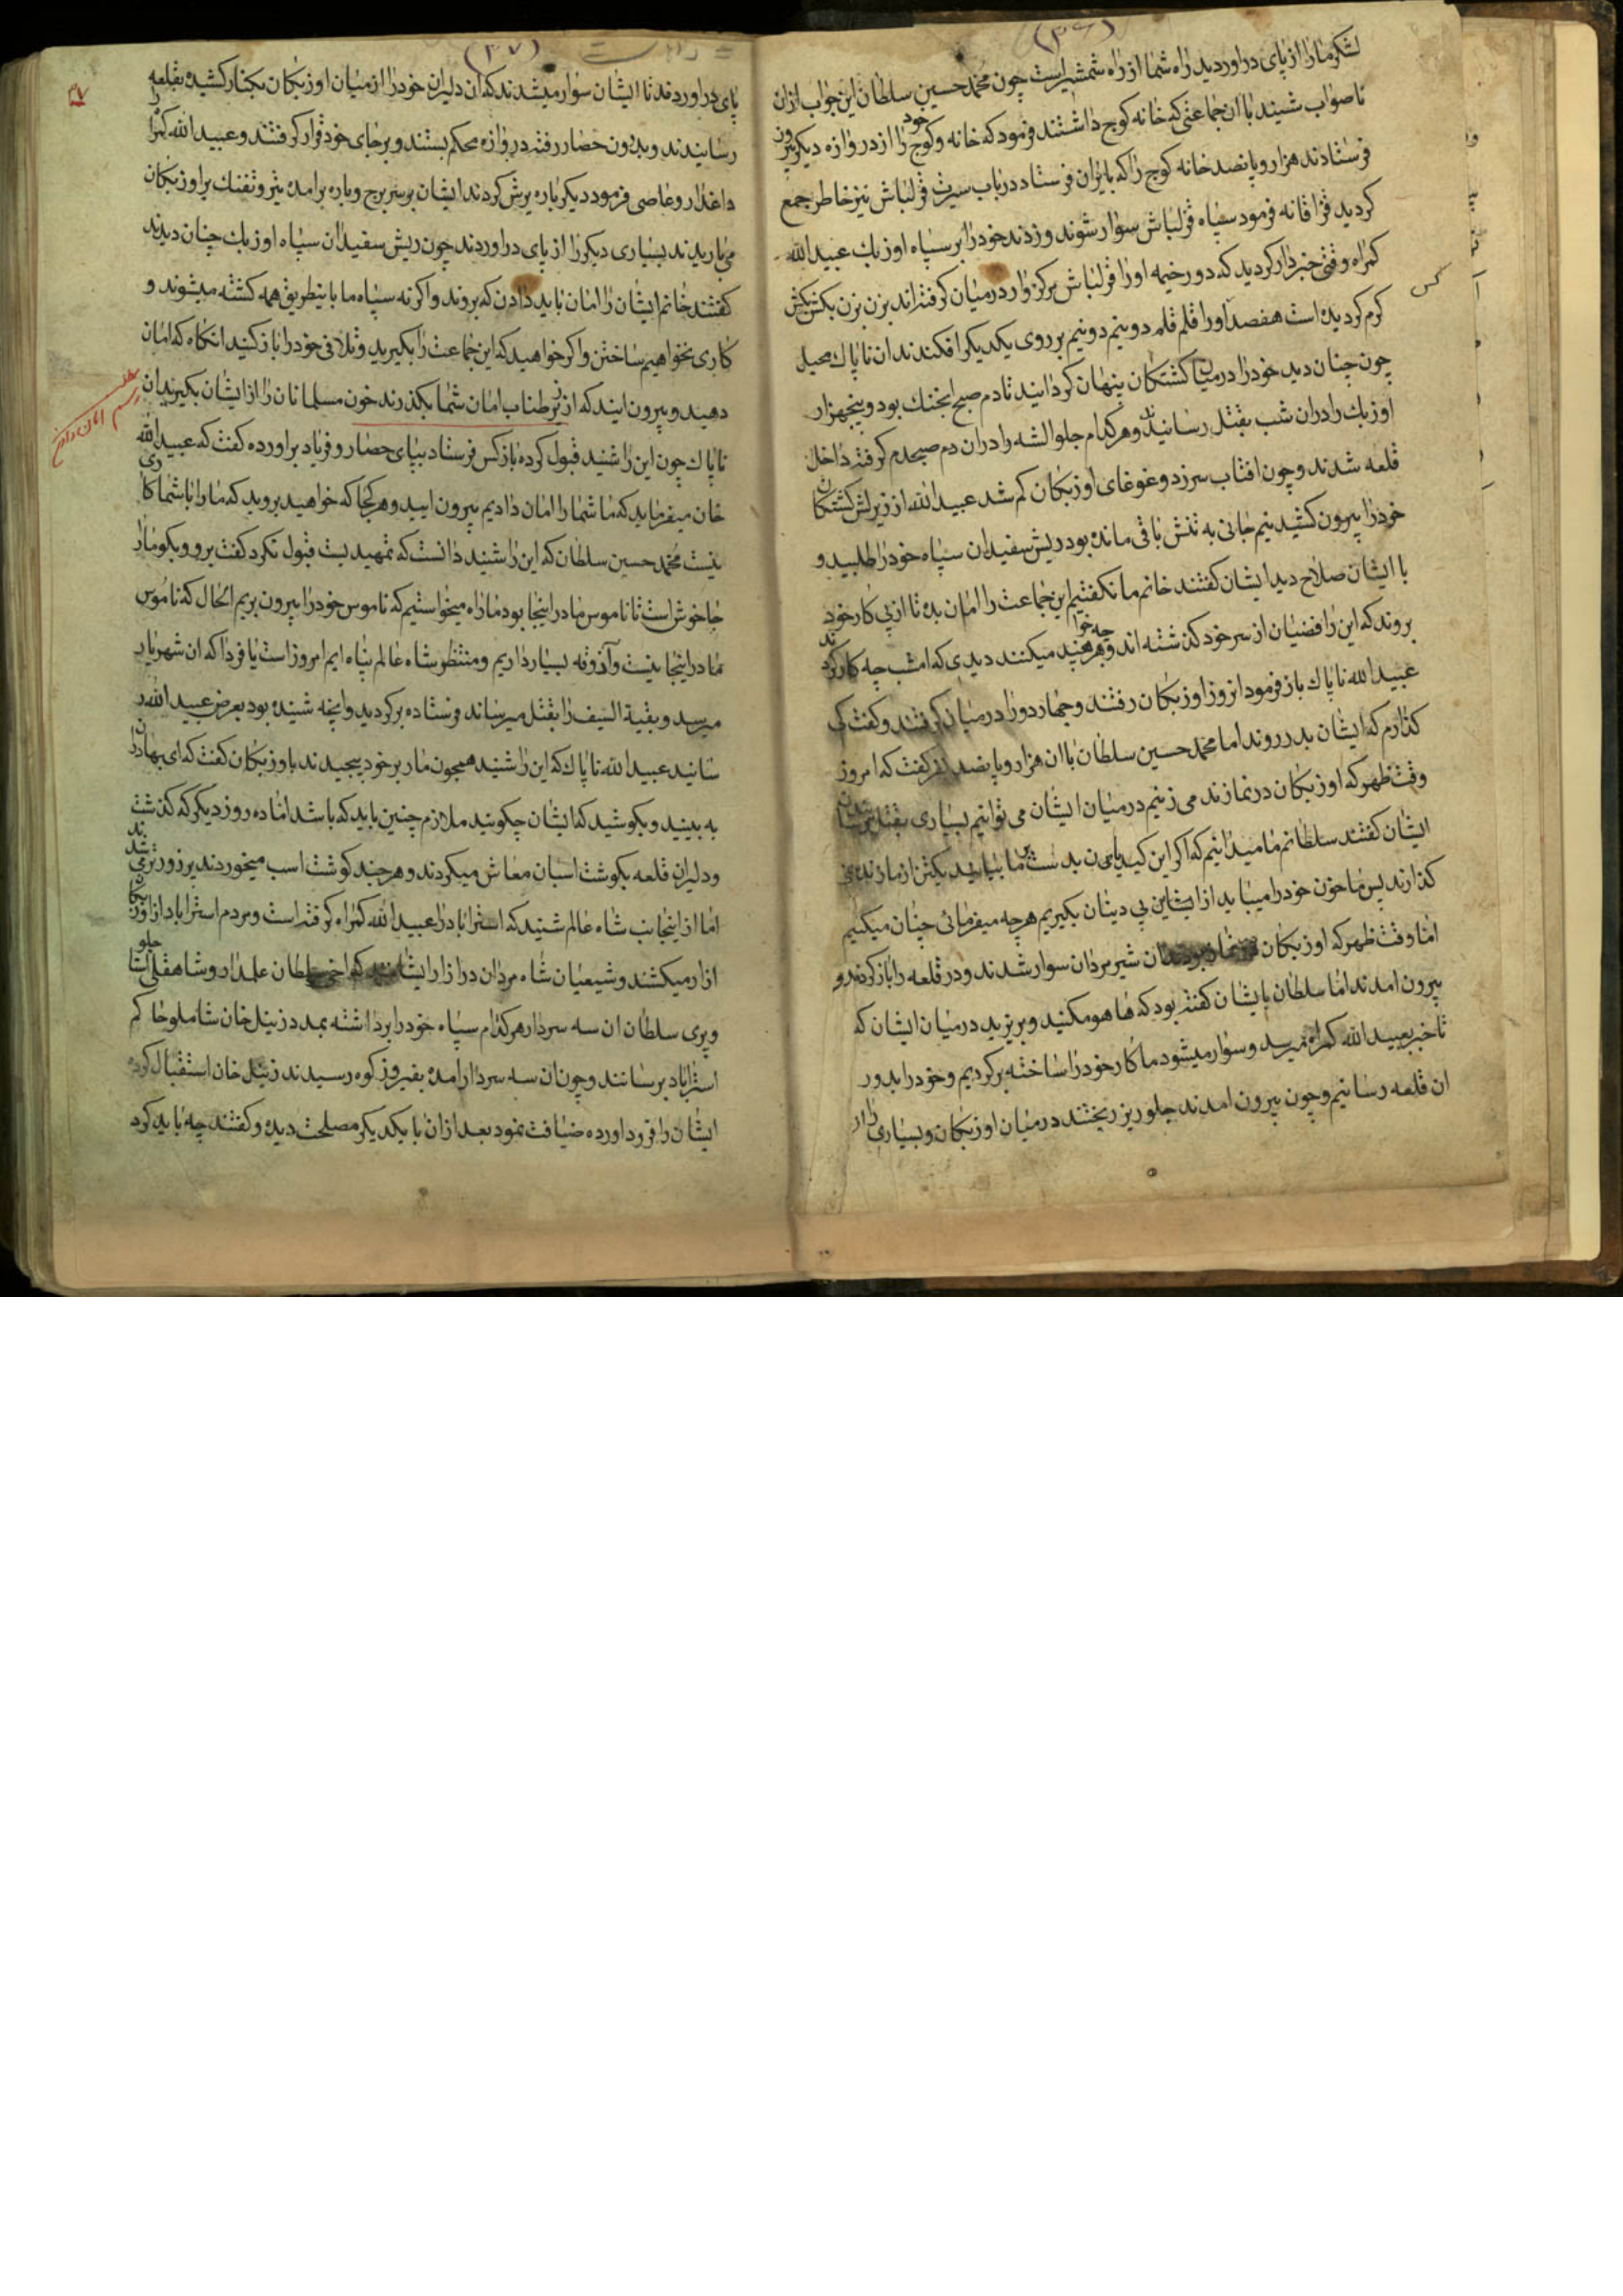 (۳۶)
لشکر ما را از پای دراوردید راه شما از راه شمشیر است چون محمد حسین سلطان این جواب ازان
ناصواب شنید با ان جماعتی که خانه کوچ داشتند فرمود که خانه وکوچ خود را از دروازه دیکر بیرون
فرستادند هزار و پانصد خانه کوچ را که بایران فرستاد در باب سیرت قزلباش نیز خاطر جمع
کردید قراقانه فرمود سپاه قزلباش سوار شوند و زدند خود را بر سپاه اوزبک عبید الله
کمراه وقتی خبردار کردید که دور خیمه اورا قزلباش پرکزوار درمیان کرفته اند بزن بزن بکش بکش
کرم کردیده است هفصد اورا قلم قلم دو نیم دو نیم بر روی یکدیکر افکندند ان ناپاک محیل
چون چنان دید خود را درمیان کشتکان پنهان کردانید تا دم صبح انجنک بود و پنجهزار
اوزبک را دران شب بقتل رسانید وهر کدام جلو الشه را دران دم صبحدم کرفته داخل
قلعه شدند وچون افتاب سرزد وغوغای اوزبکان کم شد عبید الله از زیر لش کشتکان
خود را بیرون کشید نیم جانی به تنش باقی مانده بود ریش سفیدان سپاه خود را طلبید و
با ایشان صلاح دید ایشان کفتند خانم ما نکفتیم این جماعت را امان بده تا از پی کار خود
بروند که این رافضیان از سر خود کذشته اند وهر چه خواهند میکنند دیدی که امشب چه کار کردند
عبید الله ناپاک باز فرمود انروز اوزبکان رفتند وچهار دور را درمیان کرفتند و کفت کی
کذارم که ایشان بدر روند اما محمد حسین سلطان با ان هزار و پانصد نفر کفت که امروز
وقت ظهر که اوزبکان در نمازند می زنیم درمیان ایشان می توانیم بسیاری بقتل رسانیدن
ایشان کفتند سلطانم ما میدانیم که اکر این کیدی دست بر ما بیابد یکتن از ما زنده نمی
کذارند پس ما خون خود را میباید از ایشان بی دینان بکیریم هرچه میفرمائی چنان میکنیم
اما وقت ظهر که اوزبکان در نماز بودند ان شیر مردان سوار شدند و در قلعه را باز کردند و
بیرون امدند اما سلطان بایشان کفته بود که های هو مکنید و بریزید درمیان ایشان که
تا خبر بعبید الله کمراه میرسد وسوار میشود ما کار خود را ساخته برکردیم و خود را بدور
ان قلعه رسانیم وچون بیرون امدند جلو ریز ریختند درمیان اوزبکان و بسیاری را از
(۳۷)
۳۷
پای دراوردند تا ایشان سوار میشدند که ان دلیران خود را از میان اوزبکان بکنار کشیده بقلعه
رسانیدند و بدرون حصار رفته دروازه محکم بستند و برجای خود قرار کرفتند و عبید الله کمراه
داغدار و عاصی فرمود دیکرباره یرش کردند ایشان بر سر برج و باره برامده تیر وتفنک بر اوزبکان
می باریدند بسیاری دیکر را از پای دراوردند چون ریش سفیدان سپاه اوزبک چنان دیدند
کفتند خانم ایشان را امان باید دادن که بروند و اکر نه سپاه ما باینطریق همه کشته میشوند و
کاری نخواهیم ساختن و اکر خواهید که این جماعت را بکیرید و تلافی خود را باز کنید انکاه که امان
دهید و بیرون ایند که از زیر طناب امان شما بکذرند خون مسلمانان را از ایشان بکیرید ان
ناپاک چون این را شنید قبول کرده باز کس فرستاد بپای حصار و فریاد براورده کفت که عبید الله
خان میفرماید که ما شما را امان دادیم بیرون ایید و هر کجا که خواهید بروید که ما را با شما کاری
نیست محمد حسین سلطان که این را شنید دانست که تمهیدیست قبول نکرد کفت برو و بکو ما را
جا خوش است تا ناموس ما در اینجا بود ما راه میخواستیم که ناموس خود را بیرون بریم الحال که ناموس
ما در اینجا نیست و آذوقه بسیار داریم و منتظر شاه عالم پناه ایم امروز است یا فردا که ان شهریار
میرسد و بقیة السیف را بقتل میرساند فرستاده برکردید وانچه شنیده بود بعرض عبید الله ر
سانید عبید الله ناپاک که این را شنید همچون مار بر خود پیچید ند باوزبکان کفت که ای بهادران
به بینید و بکوشید که ایشان چکونید ملازم چنین باید که باشد اما ده روز دیکر که کذشت
و دلیران قلعه بکوشت اسبان معاش میکردند و هرچند کوشت اسب میخوردند پر زورتر می شدند
اما از اینجانب شاه عالم شنید که استراباد را عبید الله کمراه کرفته است و مردم استراباد از اوزبکان
ازار میکشند و شیعیان شاه مردان در ازار ایشانند که اخی سلطان علمدار و شاهقلی
و پری سلطان ان سه سردار هر کدام سپاه خود را برداشته بمدد زینل خان شاملو حاکم
استراباد برسانند و چون ان سه سردار امده بفیروز کوه رسیدند زینل خان استقبال کرده
ایشان را فرود اورده ضیافت نمود بعد ازان با یکدیکر مصلحت دیده و کفتند چه باید کرد